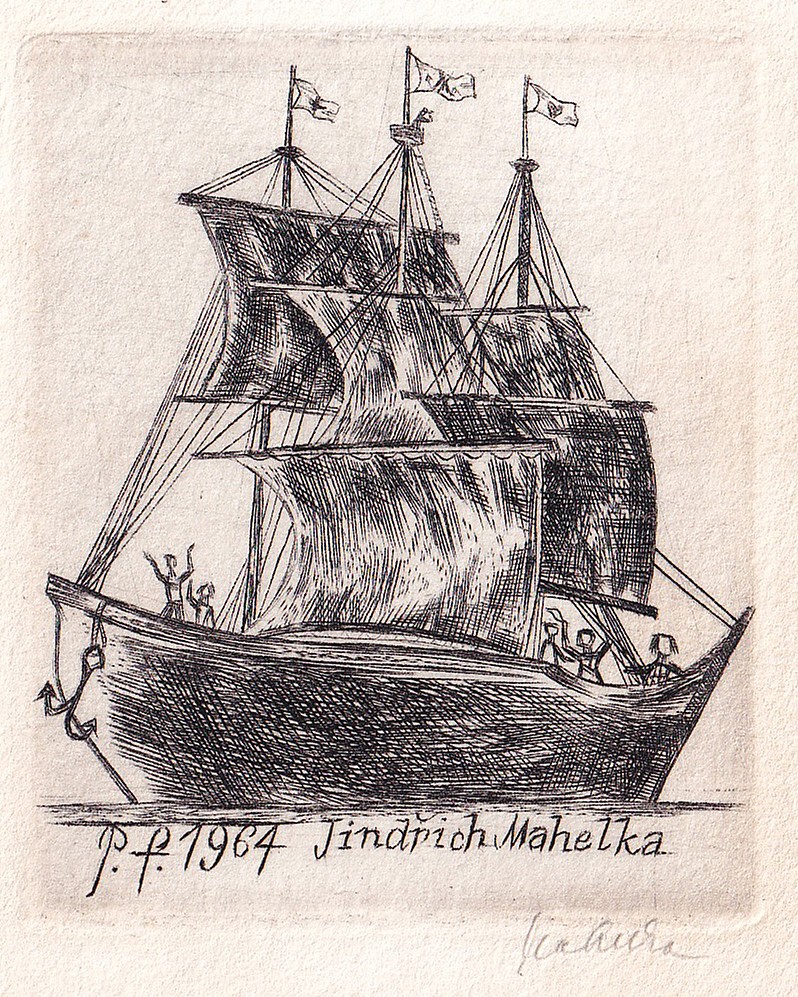 P. f. 1964 Jindřich Mahelka